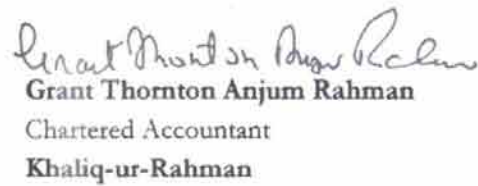 Grant Thornton Anjum Rahman
Grant Thornton Anjum Rahman
Chartered Accountant
Khaliq-ur-Rahman